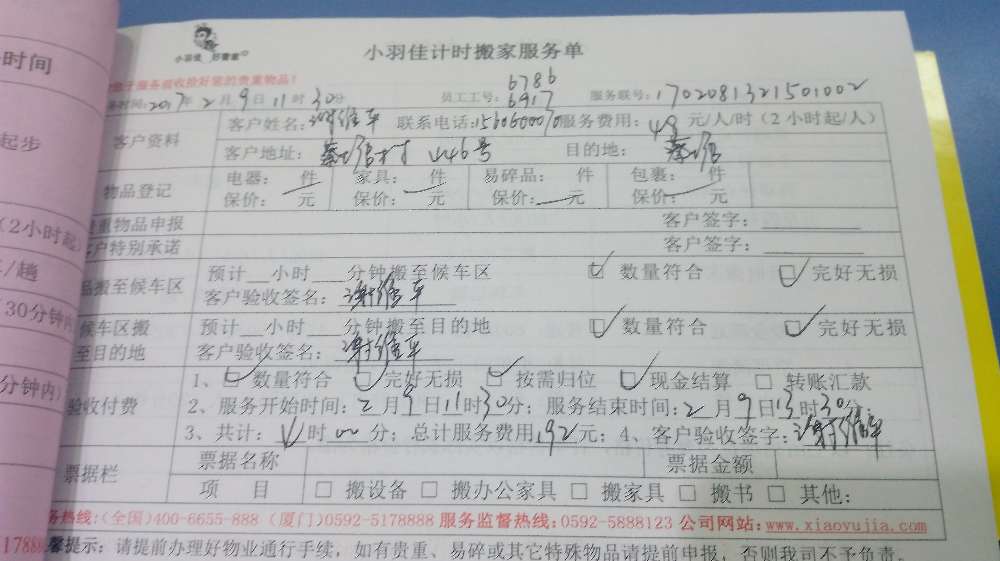 时间
起步
(2小时起)
/趟
30分钟内
分钟内)
小羽佳 好管家
小羽佳计时搬家服务单
服务前收捡好您的贵重物品!
务时间:2017年2月9日11时30分 员工工号:6786 6917 服务联号:1702081321501002
客户资料 客户姓名: 联系电话: 服务费用:48元/人/时(2小时起/人)
客户地址: 446号 目的地:
物品登记 电器: 件 家具: 件 易碎品: 件 包裹: 件
保价: 元 保价: 元 保价: 元 保价: 元
重物品申报 客户签字:
户特别承诺 客户签字:
品搬至候车区 预计 小时 分钟搬至候车区 ☑ 数量符合 ☑ 完好无损
客户验收签名:
候车区搬至目的地 预计 小时 分钟搬至目的地 ☑ 数量符合 ☑ 完好无损
客户验收签名:
验收付费 1、☑ 数量符合 ☑ 完好无损 ☑ 按需归位 ☑ 现金结算 □ 转账汇款
2、服务开始时间:2月9日11时30分;服务结束时间:2月9日13时30分
3、共计: 时00分;总计服务费用192元;4、客户验收签字:
票据栏 票据名称 票据金额
项 目 □ 搬设备 □ 搬办公家具 □ 搬家具 □ 搬书 □ 其他:
务热线:(全国)400-6655-888 (厦门)0592-5178888 服务监督热线:0592-5888123 公司网站:www.xiaoyujia.com
馨提示:请提前办理好物业通行手续,如有贵重、易碎或其它特殊物品请提前申报,否则我司不予负责。